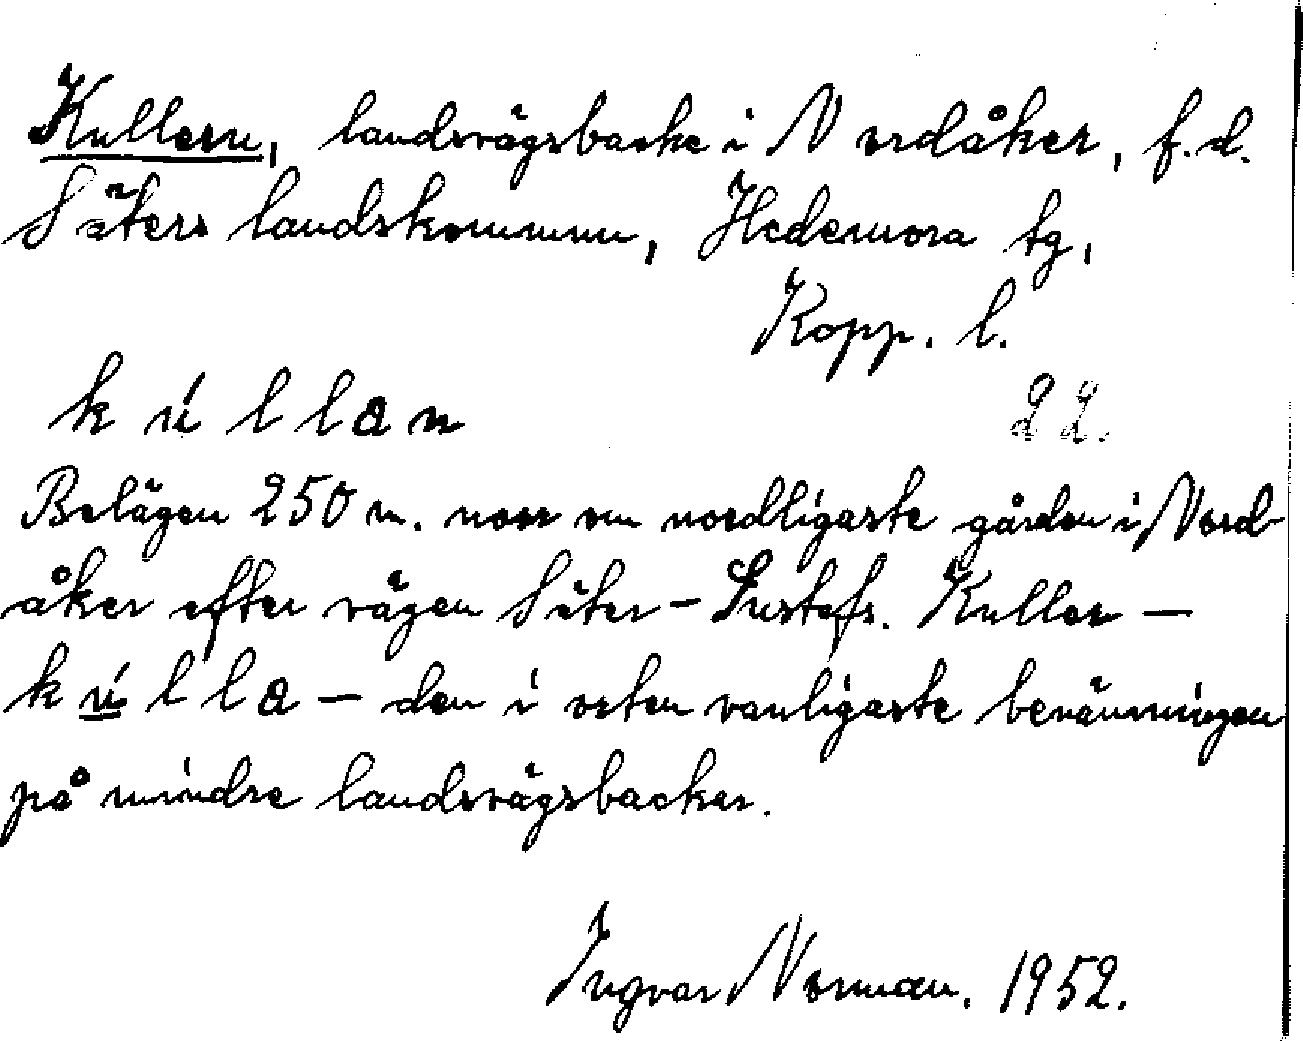 Kullern, landsvägsbacke i Nordåker, f.d.
Säters landskommun, Hedemora tg,
Kopp. l.
k ú l l a n
22.
Belägen 250 m. norr om nordligaste gården i Nord-
åker efter vägen Säter - Gustafs. Kuller -
k ú l l a - den i orten vanligaste benämningen
på mindre landsvägsbacker.
Ingvar Norman. 1952.